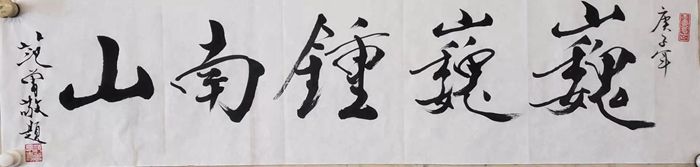 庚子年
巍巍鍾南山
范曾敬題